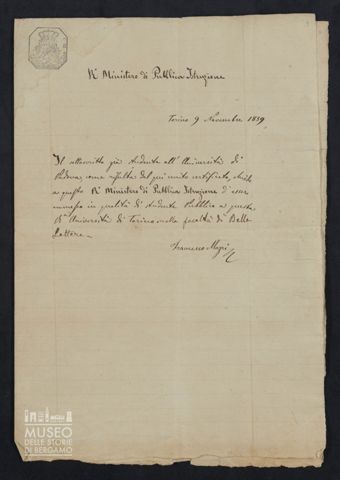 R° Ministero di Pubblica Istruzione
Torino 9 Novembre 1859
Il sottoscritto già studente all'Università di
Padova, come risulta dal qui unito certificato, chiede
a questo R° Ministero di Pubblica Istruzione d'esser
ammesso in qualità di studente Pubblico a questa
R° Università di Torino nella facoltà di Belle
Lettere.
Francesco
MUSEO
DELLE STORIE
DI BERGAMO